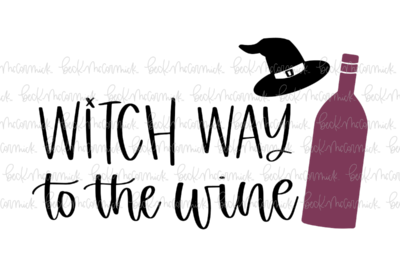 WiTCH WAY
to the wine